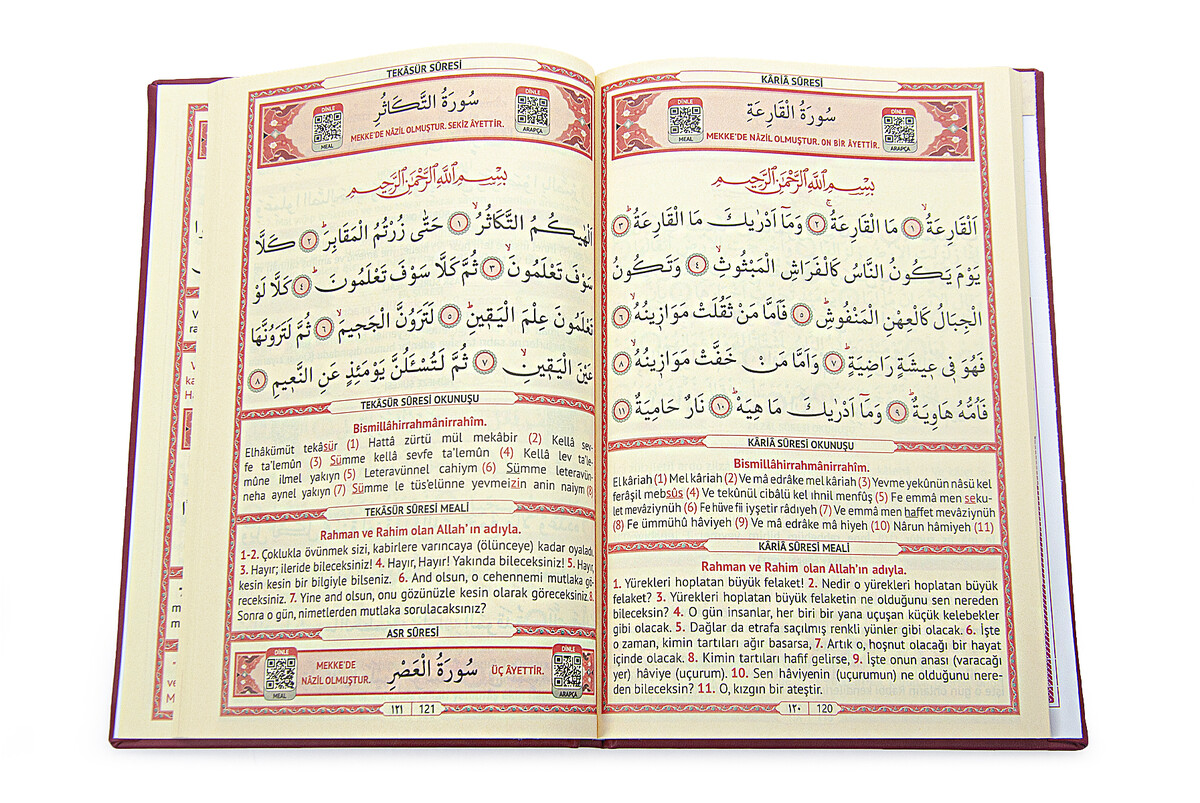 KÂRİÂ SÛRESİ
DİNLE
MEAL
سُورَةُ الْقَارِعَةِ
DİNLE
ARAPÇA
MEKKE'DE NÂZİL OLMUŞTUR. ON BİR ÂYETTİR.
بِسْمِ اللّٰهِ الرَّحْمٰنِ الرَّحِيمِ
اَلْقَارِعَةُۙ ﴿١﴾ مَا الْقَارِعَةُۚ ﴿٢﴾ وَمَٓا اَدْرٰيكَ مَا الْقَارِعَةُۜ ﴿٣﴾
يَوْمَ يَكُونُ النَّاسُ كَالْفَرَاشِ الْمَبْثُوثِۙ ﴿٤﴾ وَتَكُونُ
الْجِبَالُ كَالْعِهْنِ الْمَنْفُوشِۜ ﴿٥﴾ فَاَمَّا مَنْ ثَقُلَتْ مَوَازٖينُهُۙ ﴿٦﴾
فَهُوَ فٖي عٖيشَةٍ رَاضِيَةٍۜ ﴿٧﴾ وَاَمَّا مَنْ خَفَّتْ مَوَازٖينُهُۙ ﴿٨﴾
فَاُمُّهُ هَاوِيَةٌۜ ﴿٩﴾ وَمَٓا اَدْرٰيكَ مَا هِيَهْۜ ﴿١٠﴾ نَارٌ حَامِيَةٌ ﴿١١﴾
KÂRİÂ SÛRESİ OKUNUŞU
Bismillâhirrahmânirrahîm.
El kâriah (1) Mel kâriah (2) Ve mâ edrâke mel kâriah (3) Yevme yekûnün nâsü kel
ferâşil mebsûs (4) Ve tekûnül cibâlü kel ıhnil menfûş (5) Fe emmâ men seku-
let mevâziynüh (6) Fe hüve fii ıyşetir râdıyeh (7) Ve emmâ men haffet mevâziynüh
(8) Fe ümmühû hâviyeh (9) Ve mâ edrâke mâ hiyeh (10) Nârun hâmiyeh (11)
KÂRİÂ SÛRESİ MEALİ
Rahman ve Rahim olan Allah'ın adıyla.
1. Yürekleri hoplatan büyük felaket! 2. Nedir o yürekleri hoplatan büyük
felaket? 3. Yürekleri hoplatan büyük felaketin ne olduğunu sen nereden
bileceksin? 4. O gün insanlar, her biri bir yana uçuşan küçük kelebekler
gibi olacak. 5. Dağlar da etrafa saçılmış renkli yünler gibi olacak. 6. İşte
o zaman, kimin tartıları ağır basarsa, 7. Artık o, hoşnut olacağı bir hayat
içinde olacak. 8. Kimin tartıları hafif gelirse, 9. İşte onun anası (varacağı
yer) hâviye (uçurum). 10. Sen hâviyenin (uçurumun) ne olduğunu nere-
den bileceksin? 11. O, kızgın bir ateştir.
١٢٠ 120
TEKÂSÜR SÛRESİ
DİNLE
MEAL
سُورَةُ التَّكَاثُرِ
DİNLE
ARAPÇA
MEKKE'DE NÂZİL OLMUŞTUR. SEKİZ ÂYETTİR.
بِسْمِ اللّٰهِ الرَّحْمٰنِ الرَّحِيمِ
اَلْهٰيكُمُ التَّكَاثُرُۙ ﴿١﴾ حَتّٰى زُرْتُمُ الْمَقَابِرَۜ ﴿٢﴾ كَلَّا
سَوْفَ تَعْلَمُونَۙ ﴿٣﴾ ثُمَّ كَلَّا سَوْفَ تَعْلَمُونَۜ ﴿٤﴾ كَلَّا لَوْ
تَعْلَمُونَ عِلْمَ الْيَقٖينِۜ ﴿٥﴾ لَتَرَوُنَّ الْجَحٖيمَۙ ﴿٦﴾ ثُمَّ لَتَرَوُنَّهَا
عَيْنَ الْيَقٖينِۙ ﴿٧﴾ ثُمَّ لَتُسْـَٔلُنَّ يَوْمَئِذٍ عَنِ النَّعٖيمِ ﴿٨﴾
TEKÂSÜR SÛRESİ OKUNUŞU
Bismillâhirrahmânirrahîm.
Elhâkümüt tekâsür (1) Hattâ zürtü mül mekâbir (2) Kellâ sev-
fe ta'lemûn (3) Sümme kellâ sevfe ta'lemûn (4) Kellâ lev ta'le-
mûne ilmel yakıyn (5) Leteravünnel cahiym (6) Sümme leteravün-
neha aynel yakıyn (7) Sümme le tüs'elünne yevmeizin anin naiym (8)
TEKÂSÜR SÛRESİ MEALİ
Rahman ve Rahim olan Allah'ın adıyla.
1-2. Çoklukla övünmek sizi, kabirlere varıncaya (ölünceye) kadar oyaladı.
3. Hayır; ileride bileceksiniz! 4. Hayır, Hayır! Yakında bileceksiniz! 5. Hayır,
kesin kesin bir bilgiyle bilseniz. 6. And olsun, o cehennemi mutlaka gö-
receksiniz. 7. Yine and olsun, onu gözünüzle kesin olarak göreceksiniz. 8.
Sonra o gün, nimetlerden mutlaka sorulacaksınız?
ASR SÛRESİ
DİNLE
MEAL
MEKKE'DE
NÂZİL OLMUŞTUR.
سُورَةُ الْعَصْرِ
ÜÇ ÂYETTİR.
DİNLE
ARAPÇA
١٢١ 121